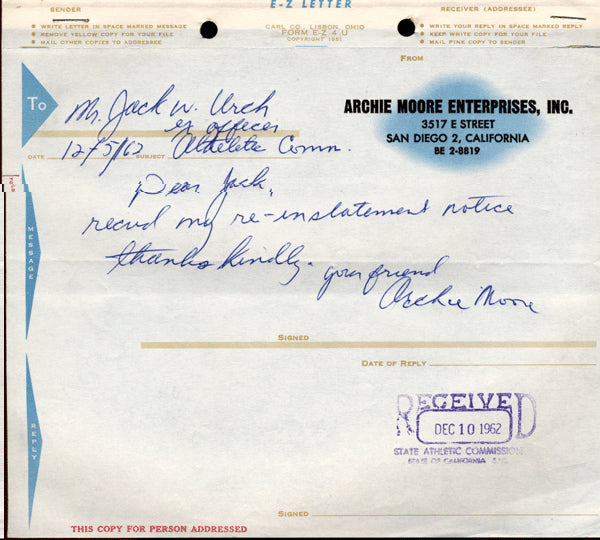 E-Z LETTER
SENDER
CARL CO., LISBON, OHIO
FORM E-Z 4 U
COPYRIGHT 1951
RECEIVER (ADDRESSEE)
WRITE LETTER IN SPACE MARKED MESSAGE
REMOVE YELLOW COPY FOR YOUR FILE
MAIL OTHER COPIES TO ADDRESSEE
WRITE YOUR REPLY IN SPACE MARKED REPLY
KEEP WHITE COPY FOR YOUR FILE
MAIL PINK COPY TO SENDER
FROM
To
Mr. Jack W. Urch
ex officer
DATE 12/5/62 SUBJECT Athlete Comm.
ARCHIE MOORE ENTERPRISES, INC.
3517 E STREET
SAN DIEGO 2, CALIFORNIA
BE 2-8819
MESSAGE
Dear Jack,
recvd my re-instatement notice
thanks kindly.
your friend
Archie Moore
SIGNED
DATE OF REPLY
REPLY
RECEIVED
DEC 10 1962
STATE ATHLETIC COMMISSION
STATE OF CALIFORNIA
SIGNED
THIS COPY FOR PERSON ADDRESSED